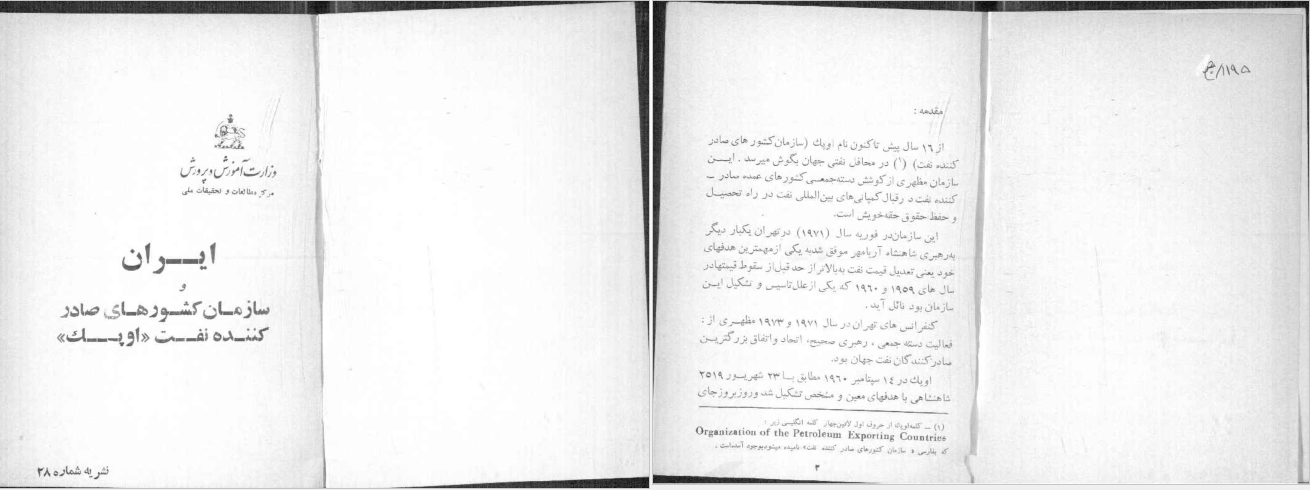 وزارت آموزش و پرورش
مرکز مطالعات و تحقیقات ملی
ایــران
و
سازمـان کشـورهـای صادر
کننـده نفـت «اوپـك»
نشریه شماره ۲۸
۱۱۹۵
مقدمه :
از ۱٦ سال پیش تاکنون نام اوپك (سازمان کشور های صادر
کننده نفت) (۱) در محافل نفتی جهان بگوش میرسد . ایــن
سازمان مظهری از کوشش دسته‌جمعـی کشورهای عمده صادر ــ
کننده نفت د رقبال کمپانی‌های بین‌المللی نفت در راه تحصیـل
و حفظ حقوق حقه‌خویش است.
این سازمان‌در فوریه سال (۱۹۷۱) در تهران یکبار دیگر
به‌رهبری شاهنشاه آریامهر موفق شدبه یکی ازمهمترین هدفهای
خود یعنی تعدیل قیمت نفت به‌بالاتر از حد قبل‌از سقوط قیمتهادر
سال های ۱۹٥۹ و ۱۹٦۰ که یکی از علل‌تاسیس و تشکیل ایـن
سازمان بود نائل آید .
کنفرانس های تهران در سال ۱۹۷۱ و ۱۹۷۳ مظهـری از :
فعالیت دسته جمعی ، رهبری صحیح، اتحاد واتفاق بزرگتریـن
صادرکنندگان نفت جهان بود.
اوپك در ۱٤ سپتامبر ۱۹٦۰ مطابق بـا ۲۳ شهریـور ۲٥۱۹
شاهنشاهی با هدفهای معین و مشخص تشکیل شد وروزبروزجای
(۱) ــ کلمه‌اوپك از حروف اول لاتین‌چهار کلمه انگلیسی زیر :
Organization of the Petroleum Exporting Countries
که بفارسی « سازمان کشورهای صادر کننده نفت» نامیده میشودبوجود آمده‌است .
۳